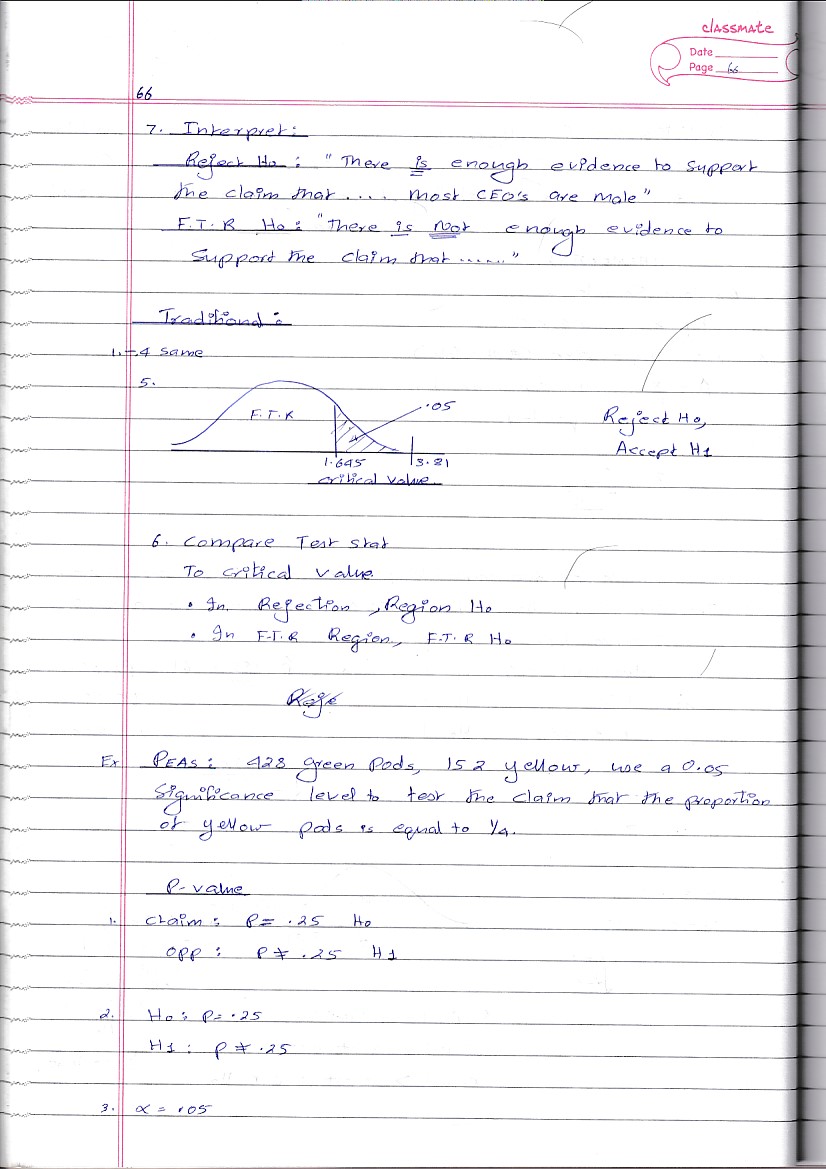 classmate
Date
Page 66
66
7. Interpret:
Reject Ho : "There is enough evidence to support
the claim that .... most CEO's are male"
F.T.R Ho: "There is Not enough evidence to
Support the claim that ......"
Traditional :
1.-4 same
5.
F.T.R
.05
Reject Ho,
Accept H1
1.645
3.21
critical value
6. Compare Test stat
To critical value
• In Rejection , Region Ho
• In F.T.R Region, F.T.R Ho
Ex PEAS: 428 green Pods, 152 yellow, use a 0.05
Significance level to test the claim that the proportion
of yellow pods is equal to 1/4.
P-value
1. CLaim: P= .25 Ho
OPP : P ≠ .25 H1
2. Ho: P= .25
H1 : P ≠ .25
3. α = .05